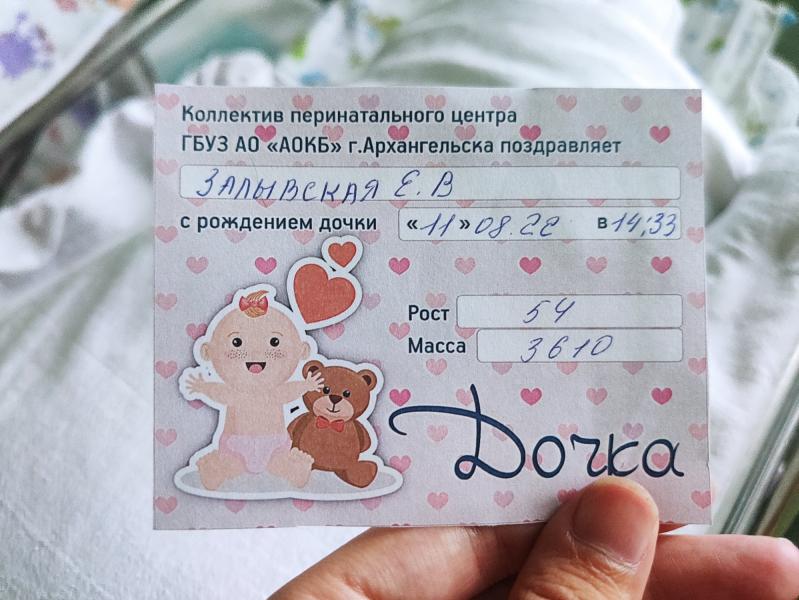 Коллектив перинатального центра
ГБУЗ АО «АОКБ» г.Архангельска поздравляет
ЗАЛЫВСКАЯ Е.В
с рождением дочки «11» 08.22 в 14;33
Рост 54
Масса 3610
Дочка